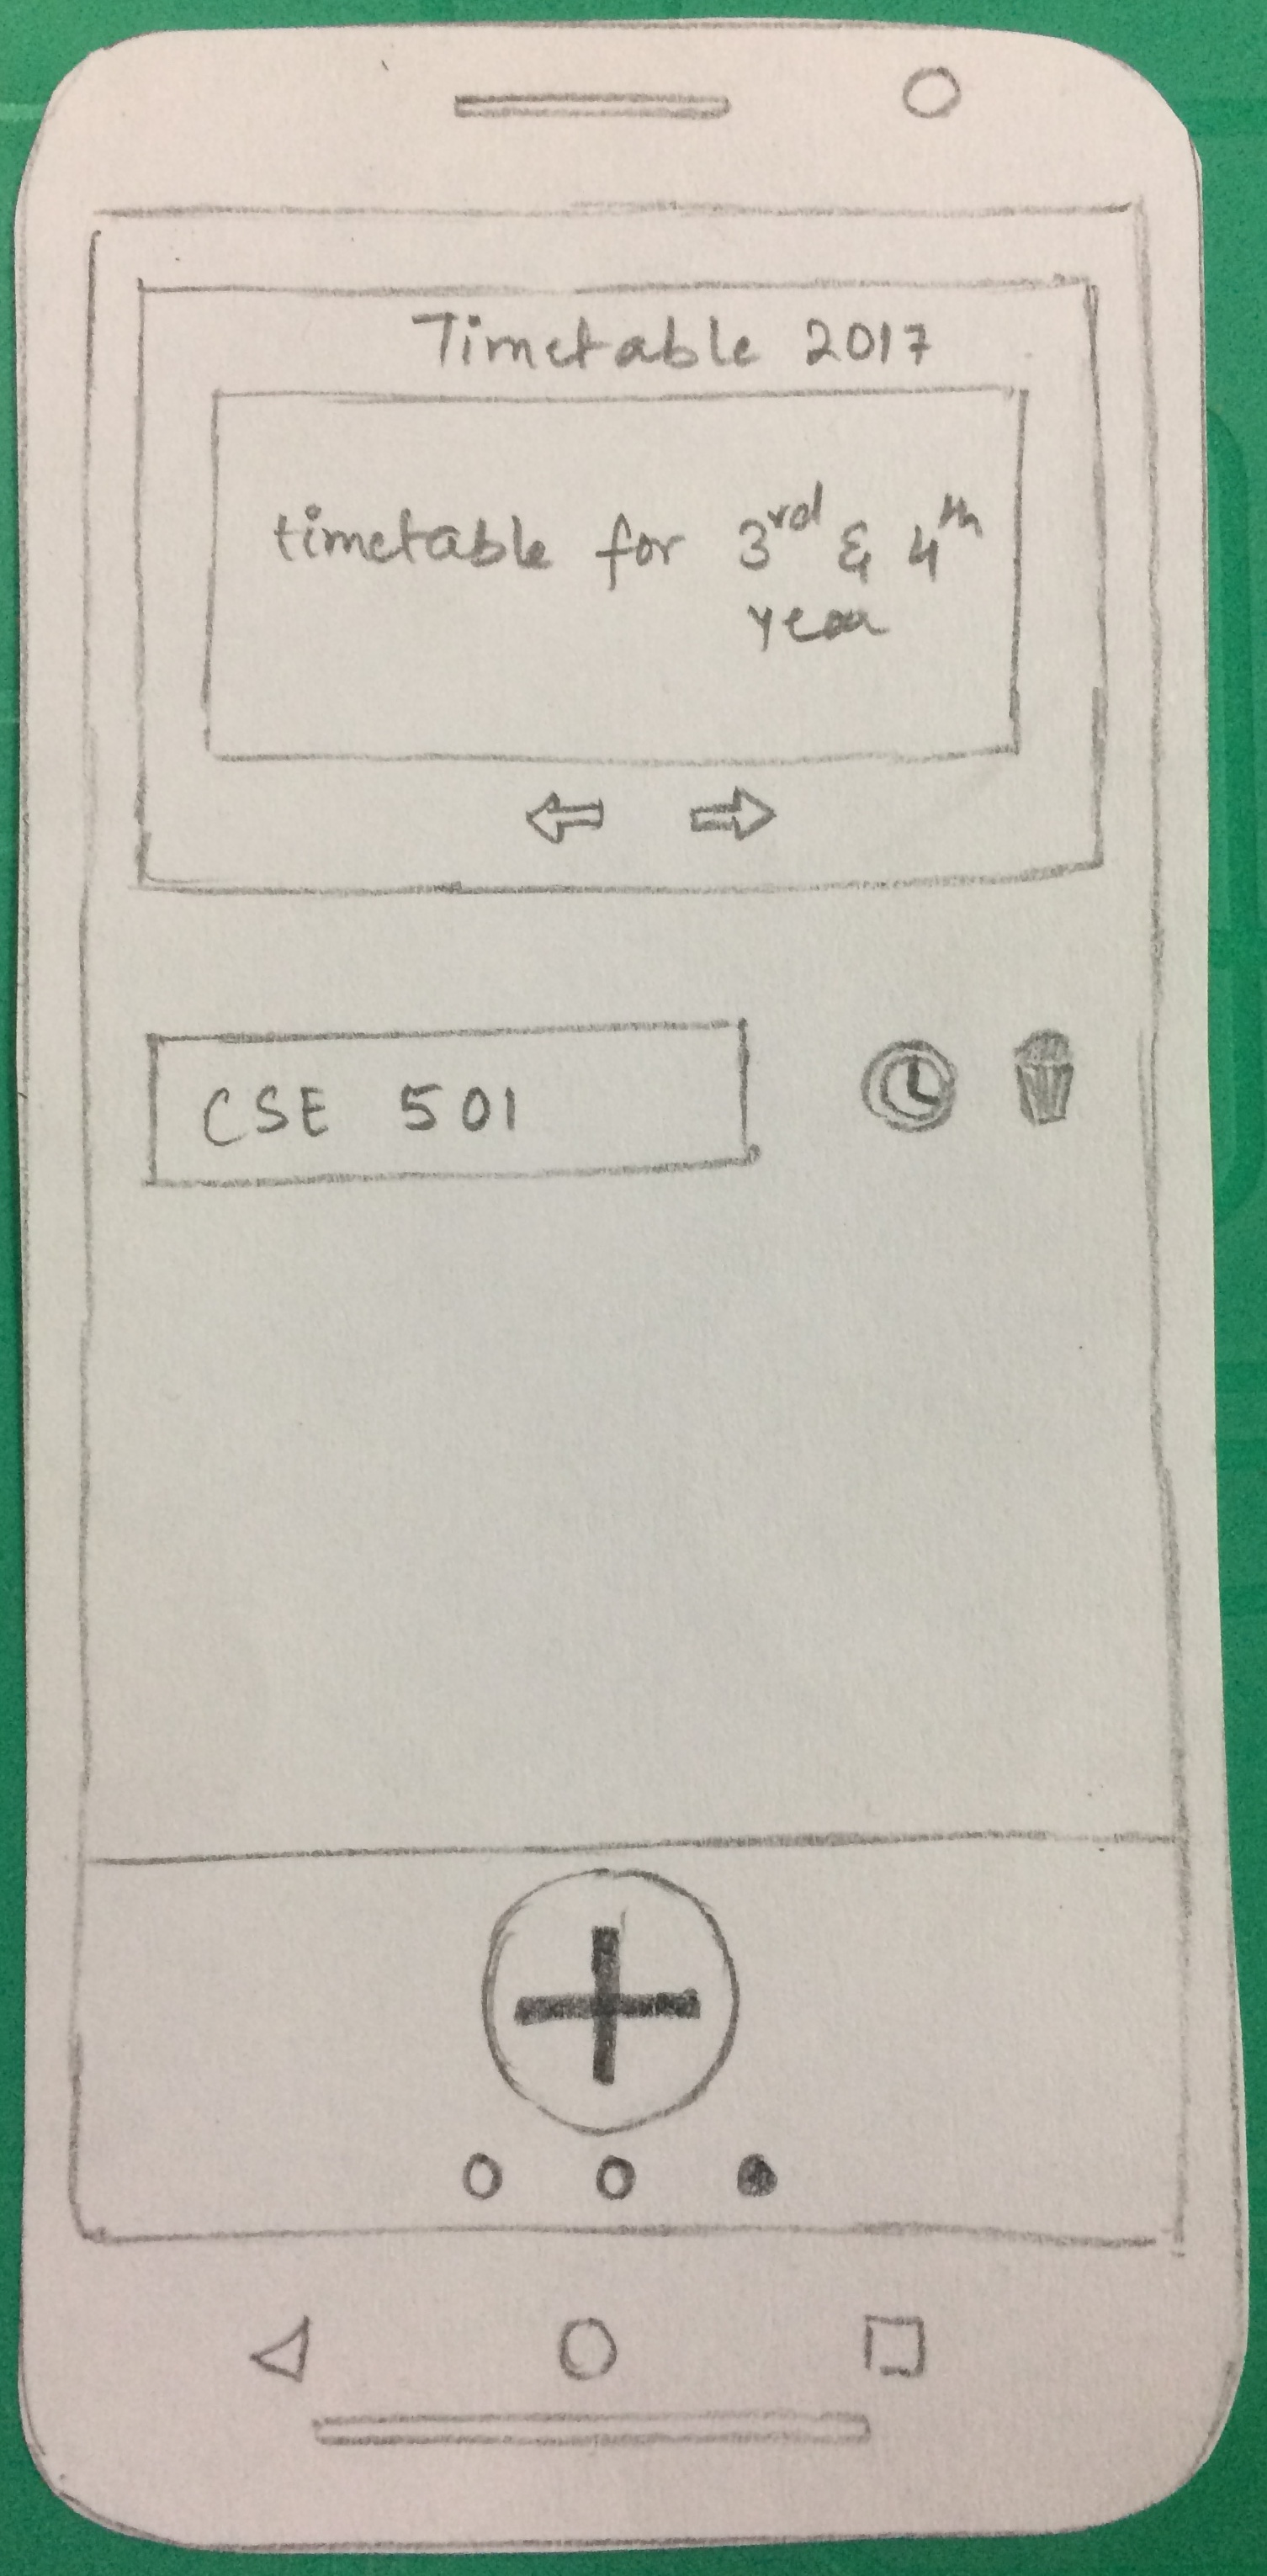 Timetable 2017
timetable for 3rd & 4th
year
CSE 501